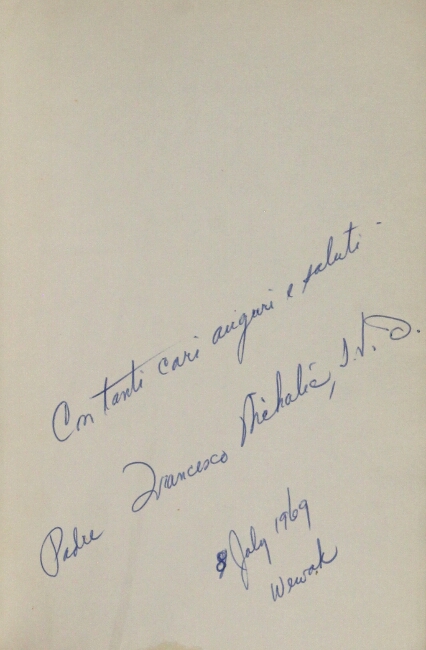 Con tanti cari auguri e saluti -
Padre Francesco Mihalic, S.V.D.
8 July 1969
Wewak